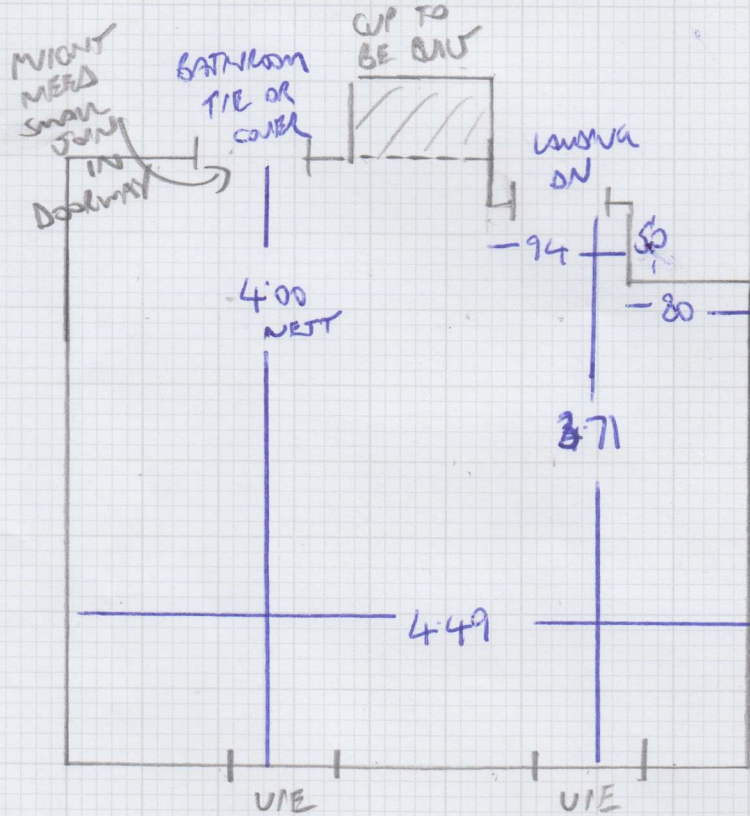 MIGHT
NEED
SMALL
JOIN
IN
DOORWAY
BATHROOM
TIE OR
COVER
CUP TO
BE BUILT
LANDING
ON
94
50
80
4.00
NETT
3.71
4.49
U/E
U/E